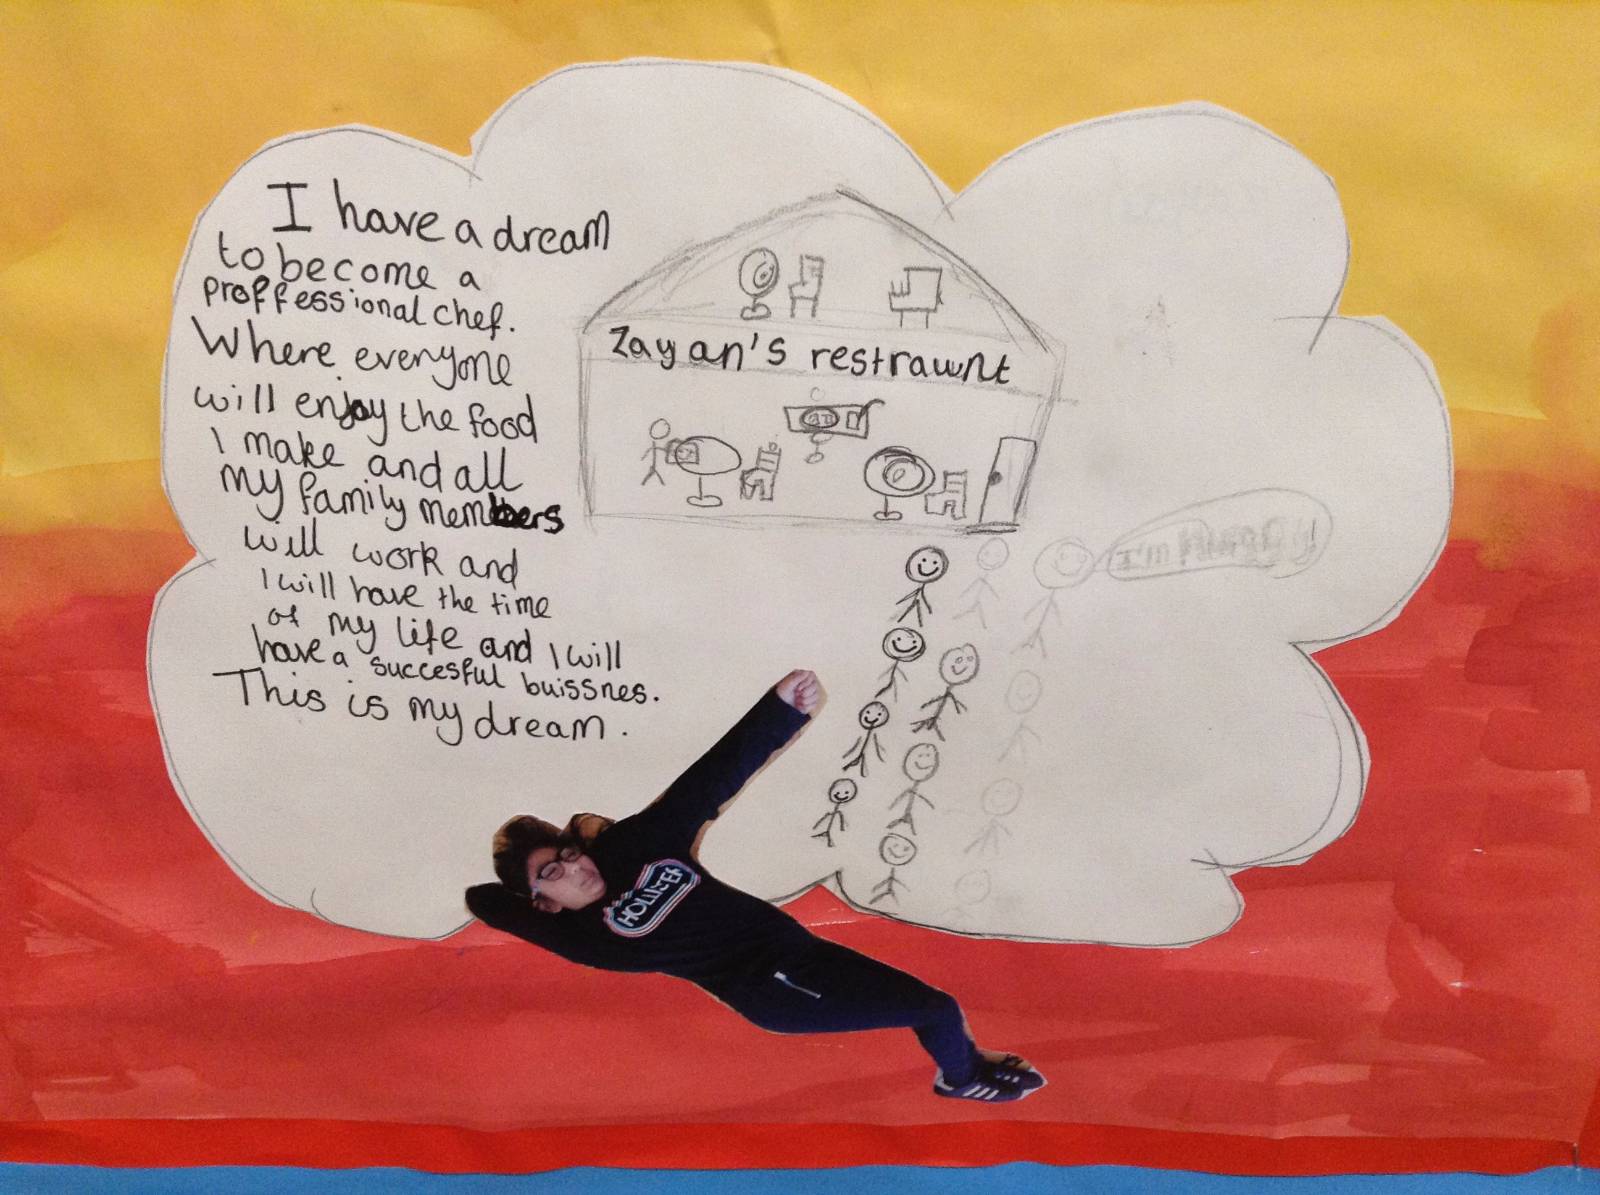 I have a dream
to become a
proffessional chef.
Where everyone
will enjoy the food
I make and all
my family members
will work and
I will have the time
of my life and I will
have a succesful buissnes.
This is my dream.
Zayan's restrawnt
I'm Hungry!
HOLLISTER